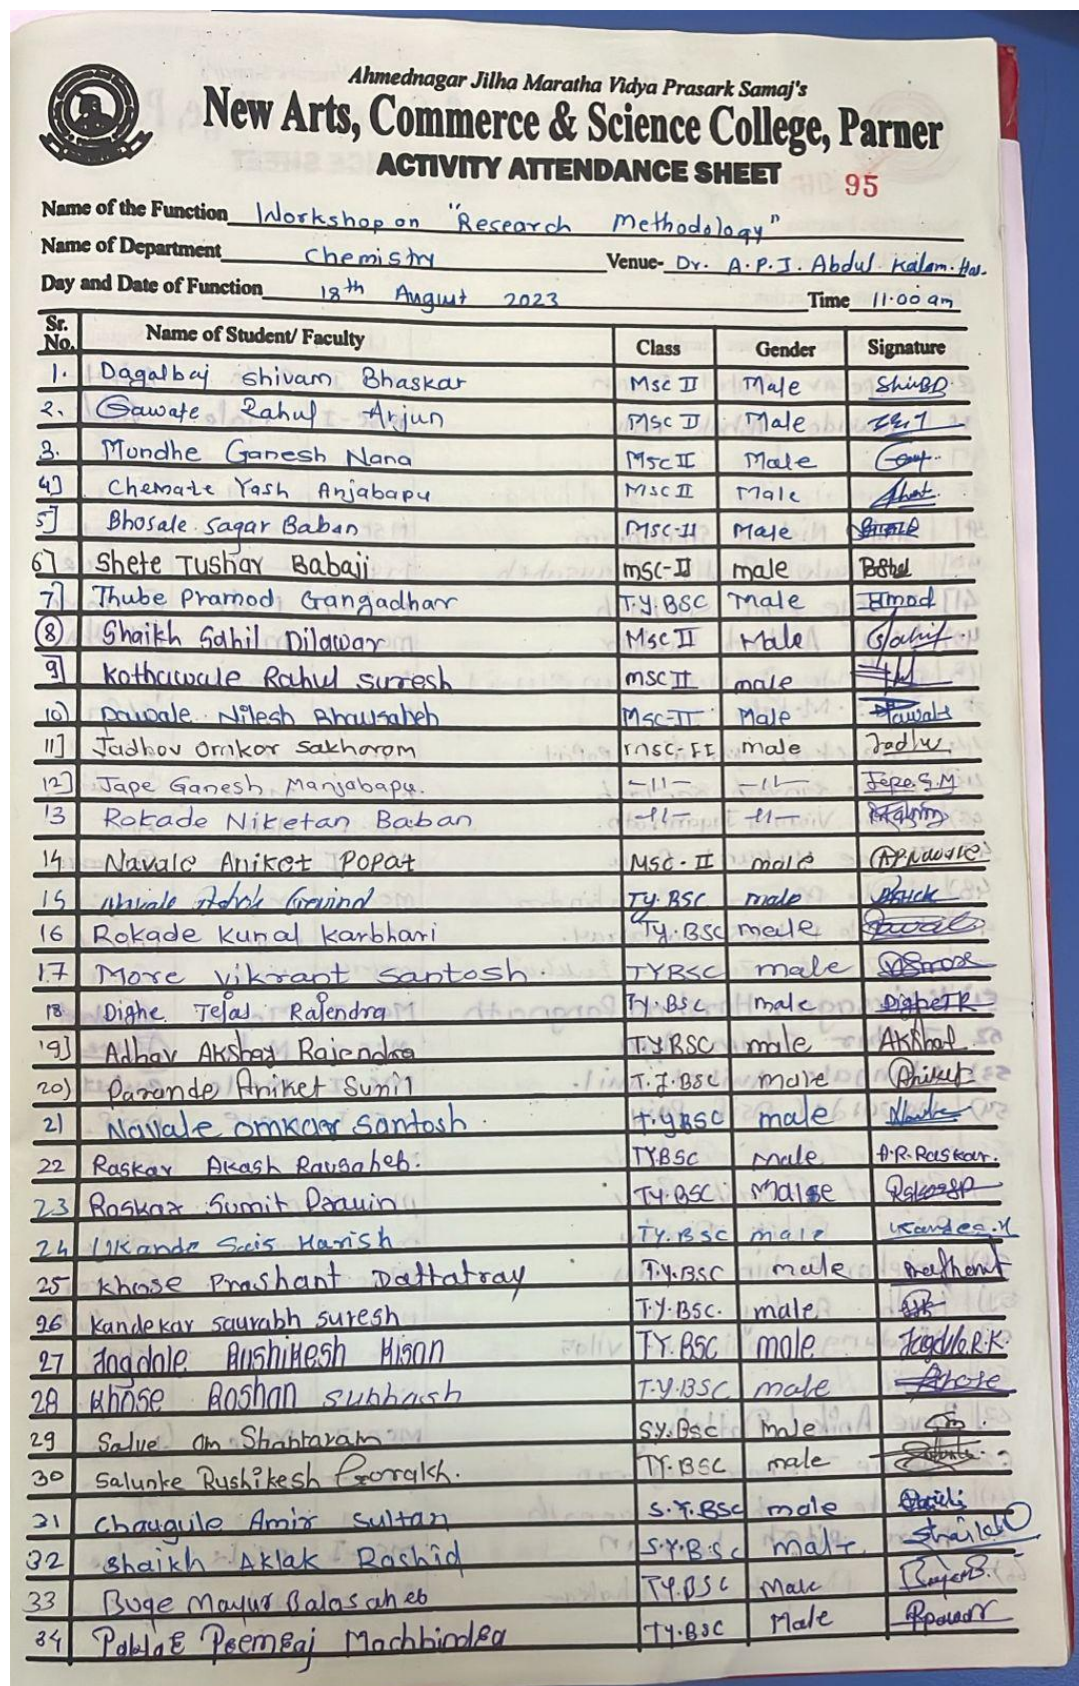 Ahmednagar Jilha Maratha Vidya Prasark Samaj's
New Arts, Commerce & Science College, Parner
ACTIVITY ATTENDANCE SHEET
95
Name of the Function Workshop on "Research Methodology"
Name of Department Chemistry Venue- Dr. A.P.J. Abdul Kalam Hal.
Day and Date of Function 18th August 2023 Time 11.00 am
Sr. No. Name of Student/ Faculty Class Gender Signature
1. Dagalbaj Shivam Bhaskar Msc II Male ShivBD.
2. Gawate Rahul Arjun Msc II Male
3. Mundhe Ganesh Nana Msc II Male
4] Chemate Yash Anjabapu Msc II Male
5] Bhosale Sagar Baban Msc-II Male
6] Shete Tushar Babaji msc-II male
7] Thube Pramod Gangadhar T.Y.BSC Male
8 Shaikh Sahil Dilawar Msc II Male Sahil
9] Kothawale Rahul suresh msc II male
10) Pawale Nilesh Bhausaheb Msc-II Male Pawale
11] Jadhov Omkar Sakharam msc-II male
12] Jape Ganesh Manjabapu. -11- -11- Jape.G.M
13 Rokade Niketan Baban -11- -11-
14 Navale Aniket Popat MSC-II male
15 Govind TY.BSC male
16 Rokade Kunal Karbhari TY.BSC meele
17 More vikrant santosh. TYBSC male VSmore
18 Dighe Tejas Rajendra TY.BSC male DigheTR
19] Adhav Akshad Rajendra T.Y.BSC male
20) Parande Aniket Sunil T.Y.BSC male Aniket
21 Navale omkar Santosh. T.YBSC male
22 Raskar Akash Rausaheb. TYBSC Male A.R.Raskar.
23 Raskar Sumit Pravin TY.BSC Malse
24 Ukande Sais Harish TY.BSC male
25 Khose Prashant Dattatray T.Y.BSC male
26 Kandekar saurabh suresh T.Y.BSC. male
27 Jagdale Rushikesh Kisan TY.BSC male Jagdale R.K.
28 Khose Roshan subhash T.Y.BSC male Khose
29 Salve Om Shantaram SY.BSC male
30 Salunke Rushikesh Gorakh. TY.BSC male
31 Chaugule Amir Sultan S.Y.BSC male
32 Shaikh Aklak Rashid S.Y.B.SC male
33 Buge Mayur Balasaheb TY.BSC Male
34 Premraj Machhindra TY.BSC Male